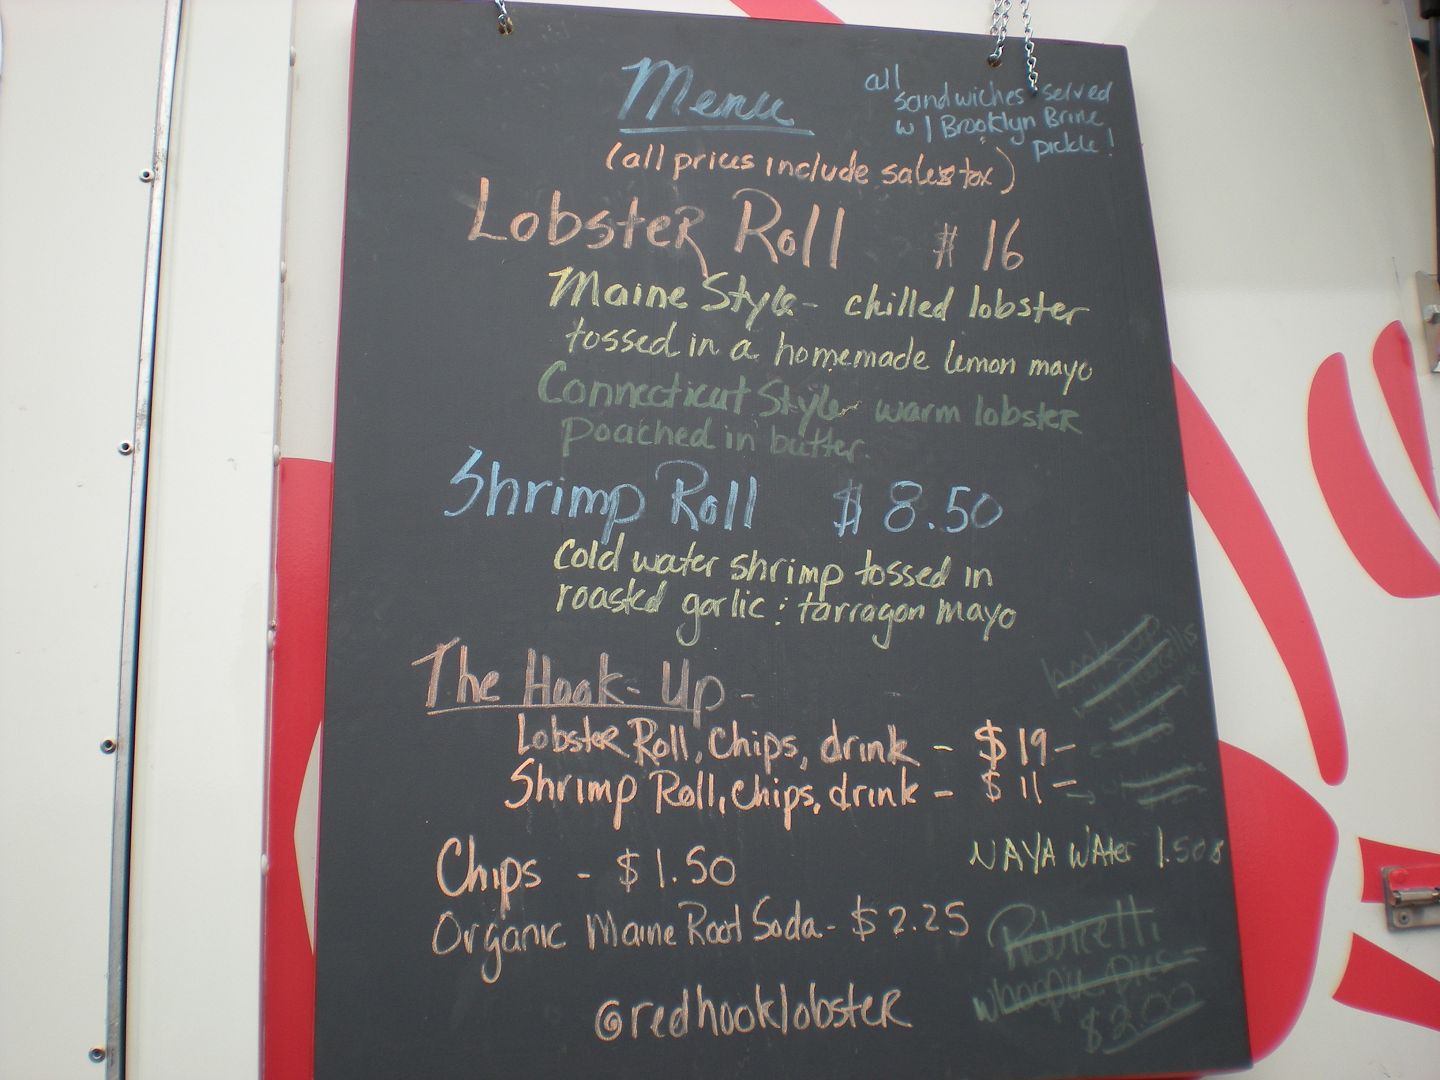 Menu
all
sandwiches served
w/ Brooklyn Brine
pickle!
(all prices include sales tax)
Lobster Roll $16
Maine Style - chilled lobster
tossed in a homemade lemon mayo
Connecticut Style warm lobster
poached in butter.
Shrimp Roll $8.50
cold water shrimp tossed in
roasted garlic : tarragon mayo
The Hook-Up -
Lobster Roll, Chips, drink - $19-
Shrimp Roll, chips, drink - $11-
hook up
Chips - $1.50
NAYA WAter 1.50
Organic Maine Root Soda - $2.25
Robicelli
whoopie pies
$3.00
@redhooklobster